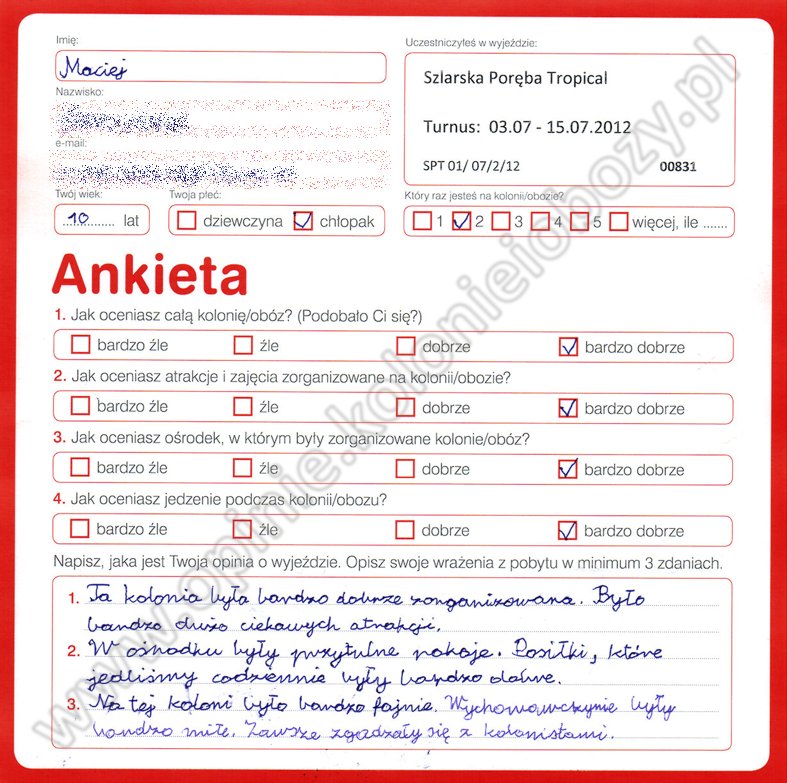 Imię:
Maciej
Nazwisko:
e-mail:
Twój wiek:
10 lat
Twoja płeć:
dziewczyna chłopak
Uczestniczyłeś w wyjeździe:
Szlarska Poręba Tropical
Turnus: 03.07 - 15.07.2012
SPT 01/ 07/2/12 00831
Który raz jesteś na kolonii/obozie?
1 2 3 4 5 więcej, ile .......
Ankieta
1. Jak oceniasz całą kolonię/obóz? (Podobało Ci się?)
bardzo źle źle dobrze bardzo dobrze
2. Jak oceniasz atrakcje i zajęcia zorganizowane na kolonii/obozie?
bardzo źle źle dobrze bardzo dobrze
3. Jak oceniasz ośrodek, w którym były zorganizowane kolonie/obóz?
bardzo źle źle dobrze bardzo dobrze
4. Jak oceniasz jedzenie podczas kolonii/obozu?
bardzo źle źle dobrze bardzo dobrze
Napisz, jaka jest Twoja opinia o wyjeździe. Opisz swoje wrażenia z pobytu w minimum 3 zdaniach.
1. Ta kolonia była bardzo dobrze zorganizowana. Było
bardzo dużo ciekawych atrakcji.
2. W ośrodku były przytulne pokoje. Posiłki, które
jedliśmy codziennie były bardzo dobre.
3. Na tej koloni było bardzo fajnie. Wychowawczynie były
bardzo miłe. Zawsze zgadzały się z kolonistami.
www.opinie.kolonieiobozy.pl